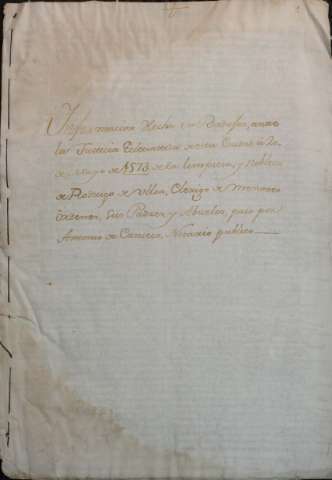 Informacion Hecha en Badajoz, ante
la Justicia Eclesiastica de esta Ciudad a 20
de Mayo de 1573 de la limpieza, y Nobleza
de Rodrigo de Ulloa, Clerigo de Menores
ordenes, sus Padres y Abuelos, paso por
Antonio de Notario publico